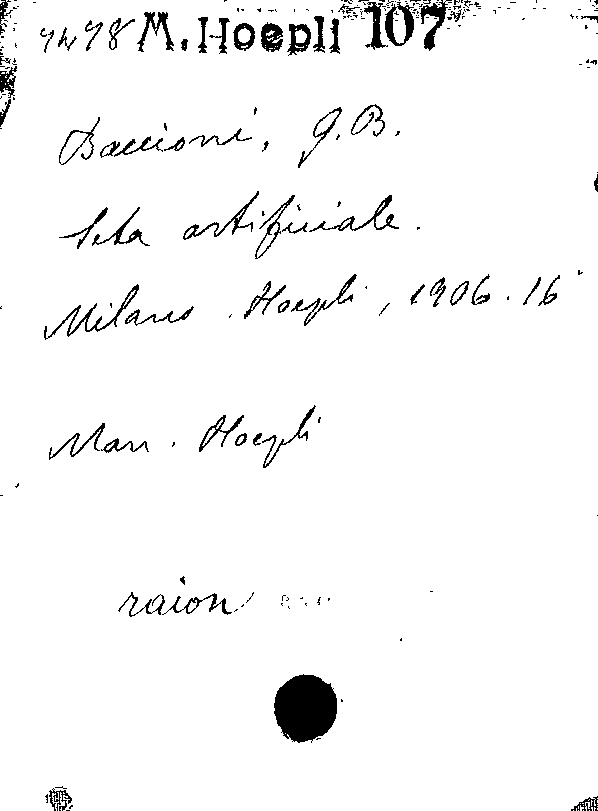 7478 M. Hoepli 107
Baccioni, G.B.
Seta artificiale.
Milano. Hoepli, 1906. 16°
Man. Hoepli
raion